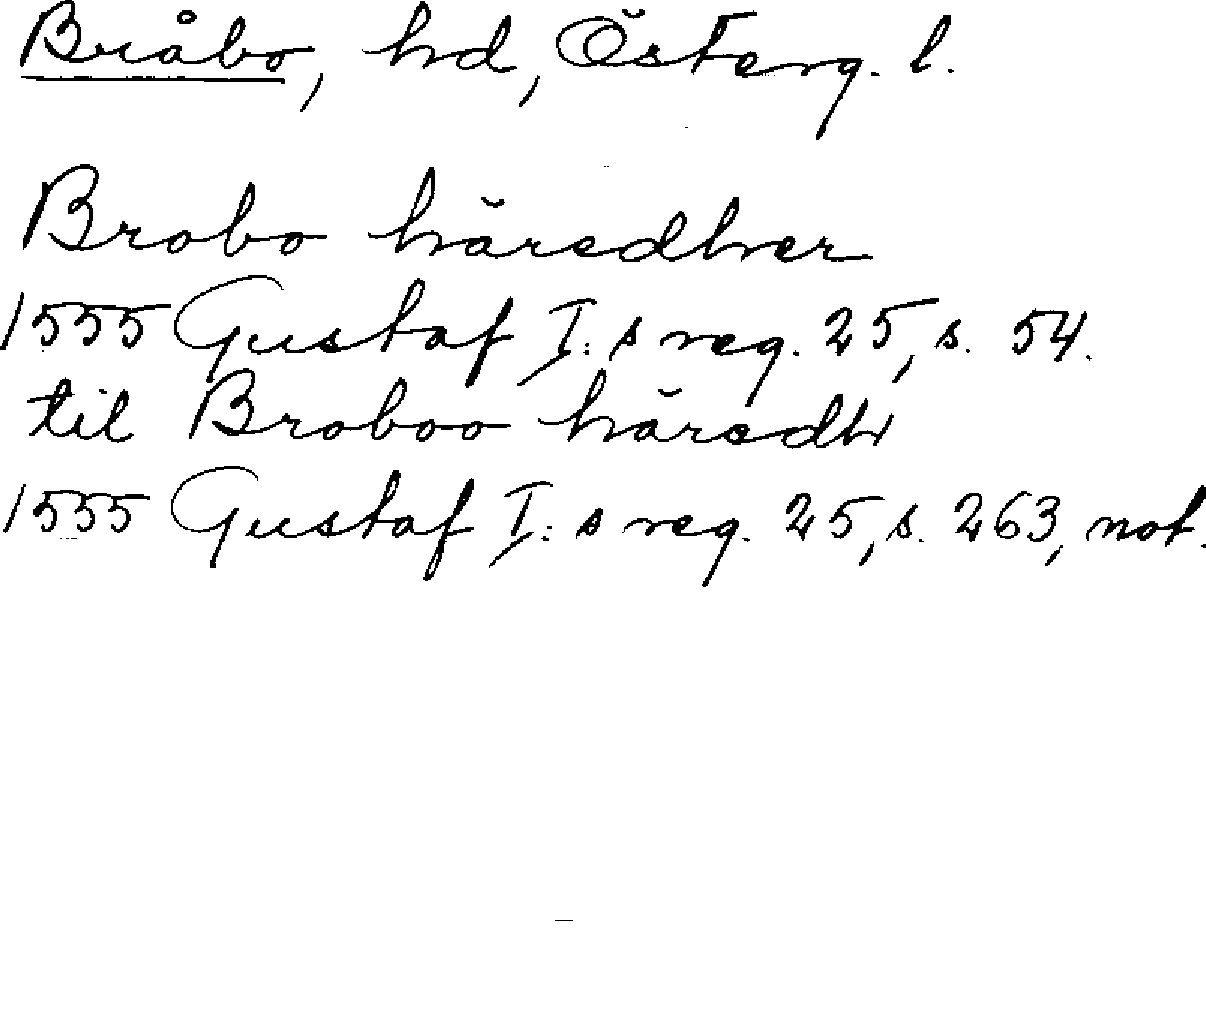 Bråbo, hd, Österg. l.
Brobo häredher
1555 Gustaf I: s reg. 25, s. 54.
til Broboo häredh
1555 Gustaf I: s reg. 25, s. 263, not.